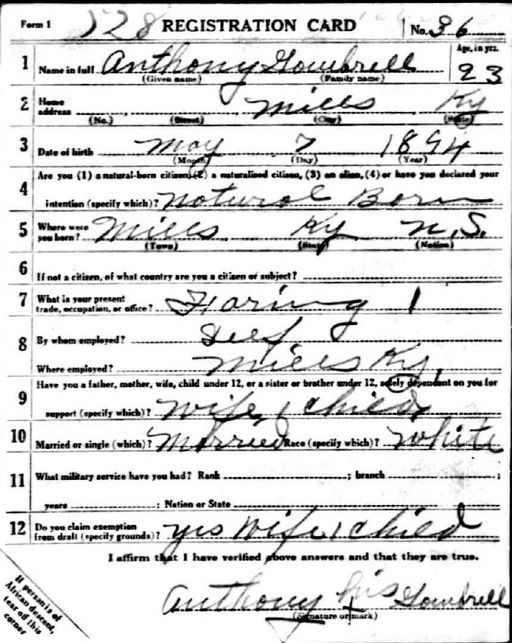 Form 1 728 REGISTRATION CARD No. 36
1 Name in full Anthony Gambrell Age, in yrs. 23
(Given name) (Family name)
2 Home address Mills Ky
(No.) (Street) (City) (State)
3 Date of birth May 7 1894
(Month) (Day) (Year)
4 Are you (1) a natural-born citizen, (2) a naturalized citizen, (3) an alien, (4) or have you declared your
intention (specify which)? Natural Born
5 Where were you born? Mills Ky
(Town) (State) (Nation)
6 If not a citizen, of what country are you a citizen or subject?
7 What is your present trade, occupation, or office? 1
8 By whom employed? Self
Where employed? Mills Ky,
9 Have you a father, mother, wife, child under 12, or a sister or brother under 12, solely dependent on you for
support (specify which)? Wife 1 child
10 Married or single (which)? Married Race (specify which)? White
11 What military service have you had? Rank ; branch ;
years ; Nation or State
12 Do you claim exemption from draft (specify grounds)? yes Wife 1 child
I affirm that I have verified above answers and that they are true.
Anthony his x Gambrell
(Signature or mark)
If person is of
African descent,
tear off this
corner